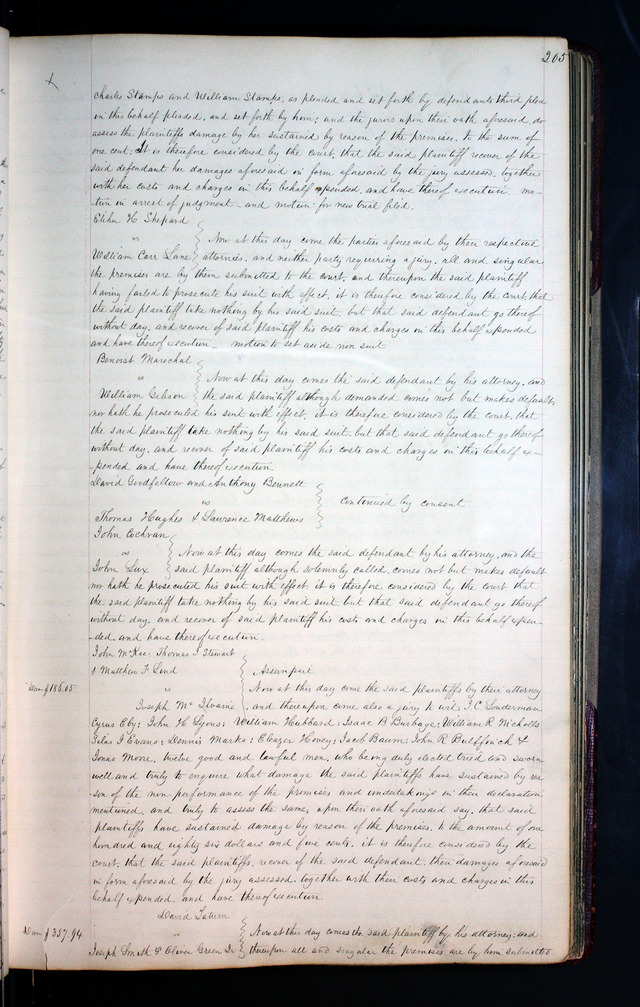 205
Charles Stamps and William Stamps, as pleaded and set forth by defendants third plea
in this behalf pleaded, and set forth by him; and the jurors upon their oath aforesaid, do
assess the plaintiffs damage by her sustained by reason of the premises, to the sum of
one cent; It is therefore considered by the court, that the said plaintiff recover of the
said defendant her damages aforesaid in form aforesaid by the jury assessed, together
with her costs and charges in this behalf expended, and have thereof execution mo-
tion in arrest of judgment and motion for new trial filed.
Elihu H Shepard
vs
Now at this day come the parties aforesaid by their respective
William Carr Lane attornies, and neither party requiring a jury, all and singular
the premises are by them submitted to the court, and thereupon the said plaintiff
having failed to prosecute his suit with effect, it is therefore considered by the court that
the said plaintiff take nothing by his said suit, but that said defendant go thereof
without day, and recover of said plaintiff his costs and charges in this behalf expended
and have thereof execution _ motion to set aside non suit
Benoist Marechal
vs Now at this day comes the said defendant by his attorney, and
William Gibson the said plaintiff although demanded comes not but makes default,
nor hath he prosecuted his suit with effect, it is therefore considered by the court, that
the said plaintiff take nothing by his said suit, but that said defendant go thereof
without day, and recover of said plaintiff his costs and charges in this behalf ex-
pended and have thereof execution.
David Goodfellow and Anthony Bennett
vs continued by consent
Thomas Hughes & Lawrence Matthews
John Cochran
vs Now at this day comes the said defendant by his attorney, and the
John Lux said plaintiff although solemnly called, comes not but makes default
nor hath he prosecuted his suit with effect it is therefore considered by the court that
the said plaintiff take nothing by his said suit but that said defendant go thereof
without day, and recover of said plaintiff his costs and charges in this behalf expen-
-ded, and have thereof execution.
John McKee; Thomas J Stewart
& Matthew F Lind Assumpsit
Dam $186.05 vs Now at this day come the said plaintiffs by their attorney
Joseph McIlvaine and thereupon came also a jury to wit; J. C. Louderman
Cyrus Eby; John H Lyons; William Hubbard; Isaac B Burbage; William R Nicholls
Silas J Evans; Dennis Marks; Eleazer Hovey; Jacob Baum; John R Bulffinch &
Jonas Moore, twelve good and lawful men, who being duly elected tried and sworn
well and truly to enquire what damage the said plaintiffs have sustained by rea
son of the non performance of the promises and undertakings in their declaration
mentioned, and truly to assess the same, upon their oath aforesaid say, that said
plaintiffs have sustained damage by reason of the premises, to the amount of one
hundred and eighty six dollars and five cents; it is therefore considered by the
court, that the said plaintiffs, recover of the said defendant, their damages aforesaid
in form aforesaid by the jury assessed, together with their costs and charges in this
behalf expended and have thereof execution.
David Tatum
Dam $357.94 vs Now at this day comes the said plaintiff by his attorney; and
Joseph Smith & Oliver Green Jr thereupon all and singular the premises are by him submitted